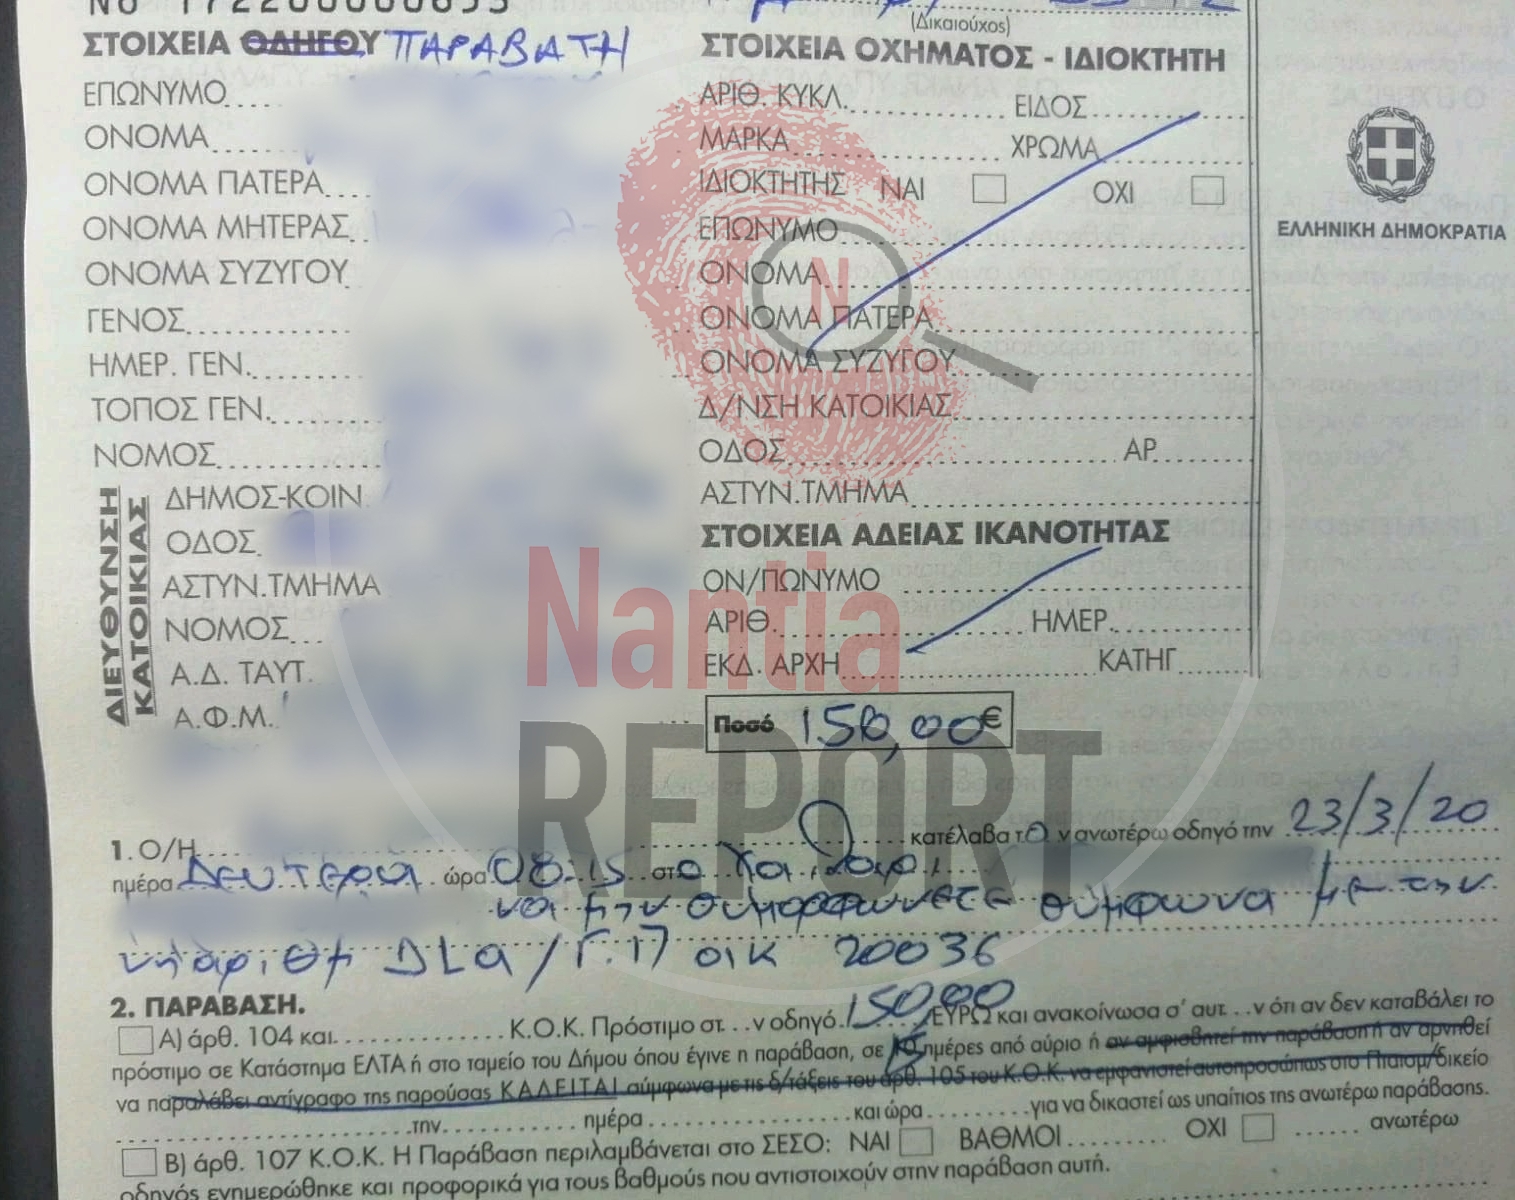 Νο 172200000653
(Δικαιούχος)
ΣΤΟΙΧΕΙΑ ΟΔΗΓΟΥ ΠΑΡΑΒΑΤΗ
ΕΠΩΝΥΜΟ
ΟΝΟΜΑ
ΟΝΟΜΑ ΠΑΤΕΡΑ
ΟΝΟΜΑ ΜΗΤΕΡΑΣ
ΟΝΟΜΑ ΣΥΖΥΓΟΥ
ΓΕΝΟΣ
ΗΜΕΡ. ΓΕΝ.
ΤΟΠΟΣ ΓΕΝ.
ΝΟΜΟΣ
ΔΙΕΥΘΥΝΣΗ
ΚΑΤΟΙΚΙΑΣ
ΔΗΜΟΣ-ΚΟΙΝ
ΟΔΟΣ
ΑΣΤΥΝ.ΤΜΗΜΑ
ΝΟΜΟΣ
Α.Δ. ΤΑΥΤ.
Α.Φ.Μ.
ΣΤΟΙΧΕΙΑ ΟΧΗΜΑΤΟΣ - ΙΔΙΟΚΤΗΤΗ
ΑΡΙΘ. ΚΥΚΛ. ΕΙΔΟΣ
ΜΑΡΚΑ ΧΡΩΜΑ
ΙΔΙΟΚΤΗΤΗΣ ΝΑΙ ΟΧΙ
ΕΠΩΝΥΜΟ
ΟΝΟΜΑ
ΟΝΟΜΑ ΠΑΤΕΡΑ
ΟΝΟΜΑ ΣΥΖΥΓΟΥ
Δ/ΝΣΗ ΚΑΤΟΙΚΙΑΣ
ΟΔΟΣ ΑΡ.
ΑΣΤΥΝ.ΤΜΗΜΑ
ΣΤΟΙΧΕΙΑ ΑΔΕΙΑΣ ΙΚΑΝΟΤΗΤΑΣ
ΟΝ/ΠΩΝΥΜΟ
ΑΡΙΘ. ΗΜΕΡ.
ΕΚΔ. ΑΡΧΗ ΚΑΤΗΓ
Ποσό 150,00€
ΕΛΛΗΝΙΚΗ ΔΗΜΟΚΡΑΤΙΑ
N
Nantia
REPORT
1. Ο/Η κατέλαβα το ν ανωτέρω οδηγό την 23/3/20
ημέρα Δευτέρα ώρα 08:15 στο
να μην συμμορφώνεται σύμφωνα με την
υπ'αριθμ Δ1α/Γ.Π οικ 20036
2. ΠΑΡΑΒΑΣΗ.
Α) άρθ. 104 και Κ.Ο.Κ. Πρόστιμο στ...ν οδηγό 150,00 ΕΥΡΩ και ανακοίνωσα σ' αυτ...ν ότι αν δεν καταβάλει το
πρόστιμο σε Κατάστημα ΕΛΤΑ ή στο ταμείο του Δήμου όπου έγινε η παράβαση, σε ημέρες από αύριο ή αν αμφισβητεί την παράβαση ή αν αρνηθεί
να παραλάβει αντίγραφο της παρούσας ΚΑΛΕΙΤΑΙ σύμφωνα με τις δ/τάξεις του άρθ. 105 του Κ.Ο.Κ. να εμφανιστεί αυτοπροσώπως στο Πταισμ/δικείο
την ημέρα και ώρα για να δικαστεί ως υπαίτιος της ανωτέρω παράβασης.
Β) άρθ. 107 Κ.Ο.Κ. Η Παράβαση περιλαμβάνεται στο ΣΕΣΟ: ΝΑΙ ΒΑΘΜΟΙ ΟΧΙ ανωτέρω
οδηγός ενημερώθηκε και προφορικά για τους βαθμούς που αντιστοιχούν στην παράβαση αυτή.